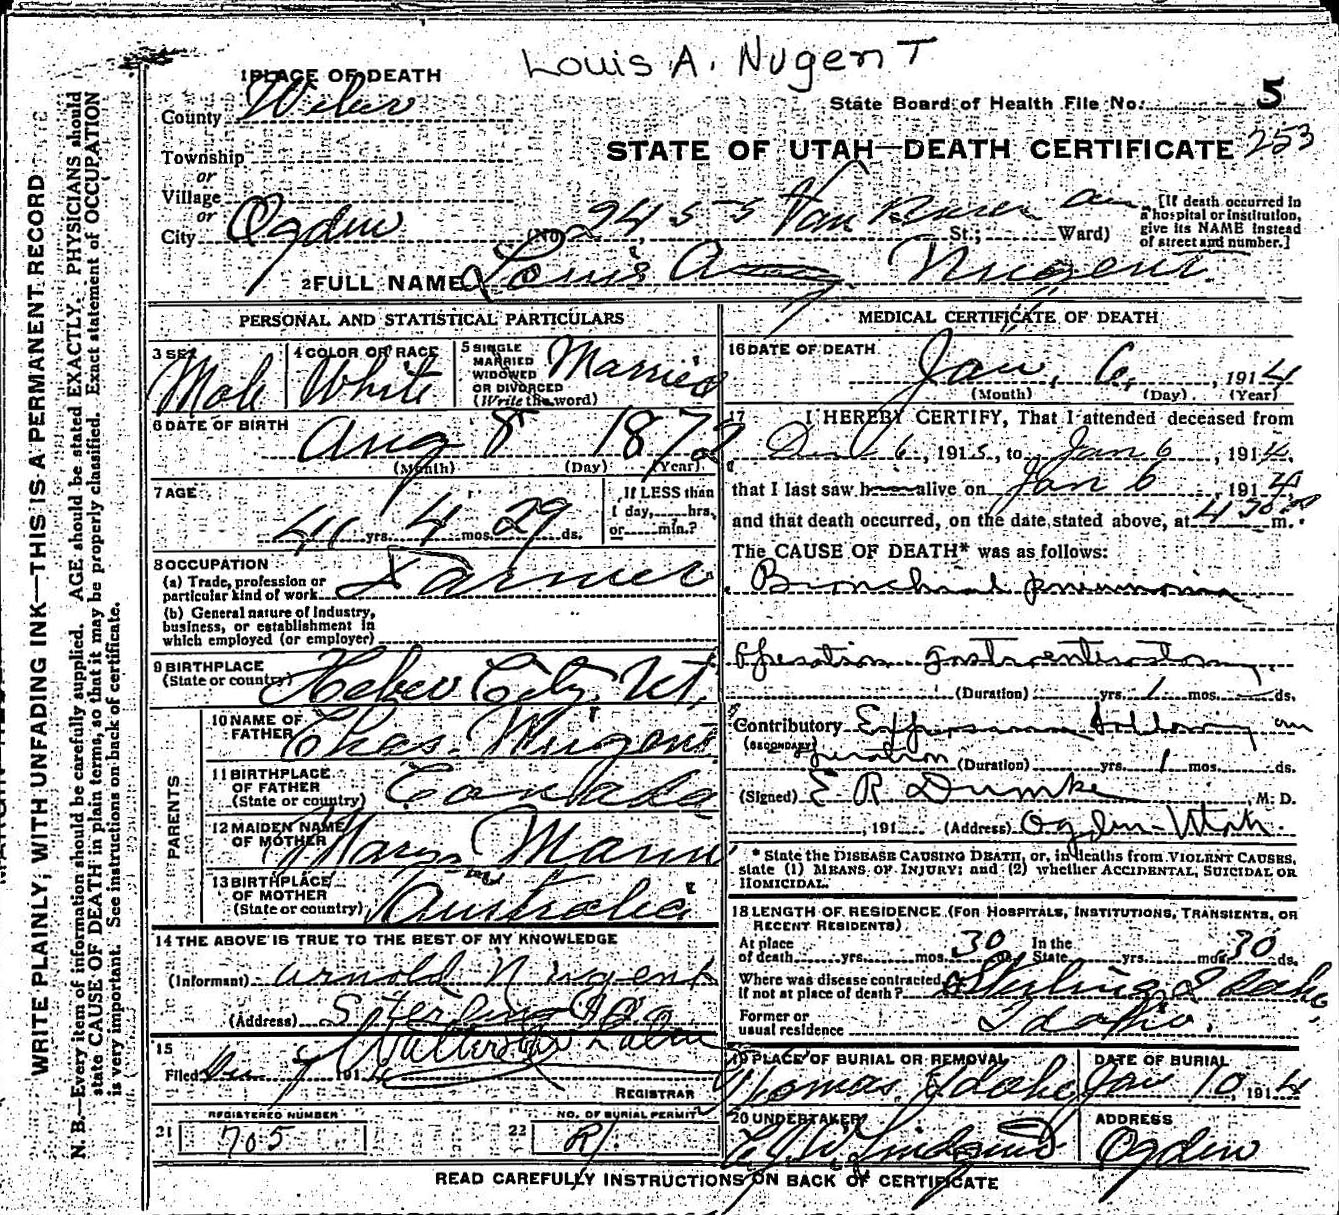 Louis A. Nugent
1 PLACE OF DEATH
County Weber
State Board of Health File No. 5
253
STATE OF UTAH—DEATH CERTIFICATE
Township
or
Village
or
City Ogden (No. 2455 Van Buren Av St.; Ward)
[If death occurred in a hospital or institution, give its NAME instead of street and number.]
2 FULL NAME Louis A Nugent
PERSONAL AND STATISTICAL PARTICULARS
3 SEX Male
4 COLOR OR RACE White
5 SINGLE MARRIED WIDOWED OR DIVORCED (Write the word) Married
6 DATE OF BIRTH Aug 8 1872
(Month) (Day) (Year)
7 AGE 41 yrs. 4 mos. 29 ds.
If LESS than 1 day, hrs. or min.?
8 OCCUPATION
(a) Trade, profession or particular kind of work Farmer
(b) General nature of Industry, business, or establishment in which employed (or employer)
9 BIRTHPLACE (State or country) Heber City, Ut
PARENTS
10 NAME OF FATHER Chas. Nugent
11 BIRTHPLACE OF FATHER (State or country) Canada
12 MAIDEN NAME OF MOTHER Mary Mann
13 BIRTHPLACE OF MOTHER (State or country) Australia
14 THE ABOVE IS TRUE TO THE BEST OF MY KNOWLEDGE
(Informant) Arnold Nugent
(Address) Sterling Ida
15
Filed 7 191
REGISTRAR
REGISTERED NUMBER
21 705
NO. OF BURIAL PERMIT
22 R/
MEDICAL CERTIFICATE OF DEATH
16 DATE OF DEATH Jan. 6, 1914
(Month) (Day) (Year)
17 I HEREBY CERTIFY, That I attended deceased from
Dec 6, 1913, to Jan 6, 1914,
that I last saw h alive on Jan 6, 1914
and that death occurred, on the date stated above, at 430 m.
The CAUSE OF DEATH* was as follows:
Bronchial pneumonia
Operation gastroenterostomy
(Duration) yrs. 1 mos. ds.
Contributory following an
(SECONDARY) operation (Duration) yrs. 1 mos. ds.
(Signed) E R Dumke, M. D.
, 191 (Address) Ogden-Utah.
* State the DISEASE CAUSING DEATH, or, in deaths from VIOLENT CAUSES, state (1) MEANS OF INJURY; and (2) whether ACCIDENTAL, SUICIDAL OR HOMICIDAL.
18 LENGTH OF RESIDENCE (FOR HOSPITALS, INSTITUTIONS, TRANSIENTS, OR RECENT RESIDENTS)
At place of death yrs. mos. 30 ds. In the State yrs. mos. 30 ds.
Where was disease contracted, if not at place of death? Sterling Idaho
Former or usual residence Idaho.
19 PLACE OF BURIAL OR REMOVAL Thomas, Idaho
DATE OF BURIAL Jan 10, 1914
20 UNDERTAKER
ADDRESS Ogden
READ CAREFULLY INSTRUCTIONS ON BACK OF CERTIFICATE
WRITE PLAINLY, WITH UNFADING INK—THIS IS A PERMANENT RECORD
N. B.—Every item of information should be carefully supplied. AGE should be stated EXACTLY. PHYSICIANS should
state CAUSE OF DEATH in plain terms, so that it may be properly classified. Exact statement of OCCUPATION
is very important. See instructions on back of certificate.